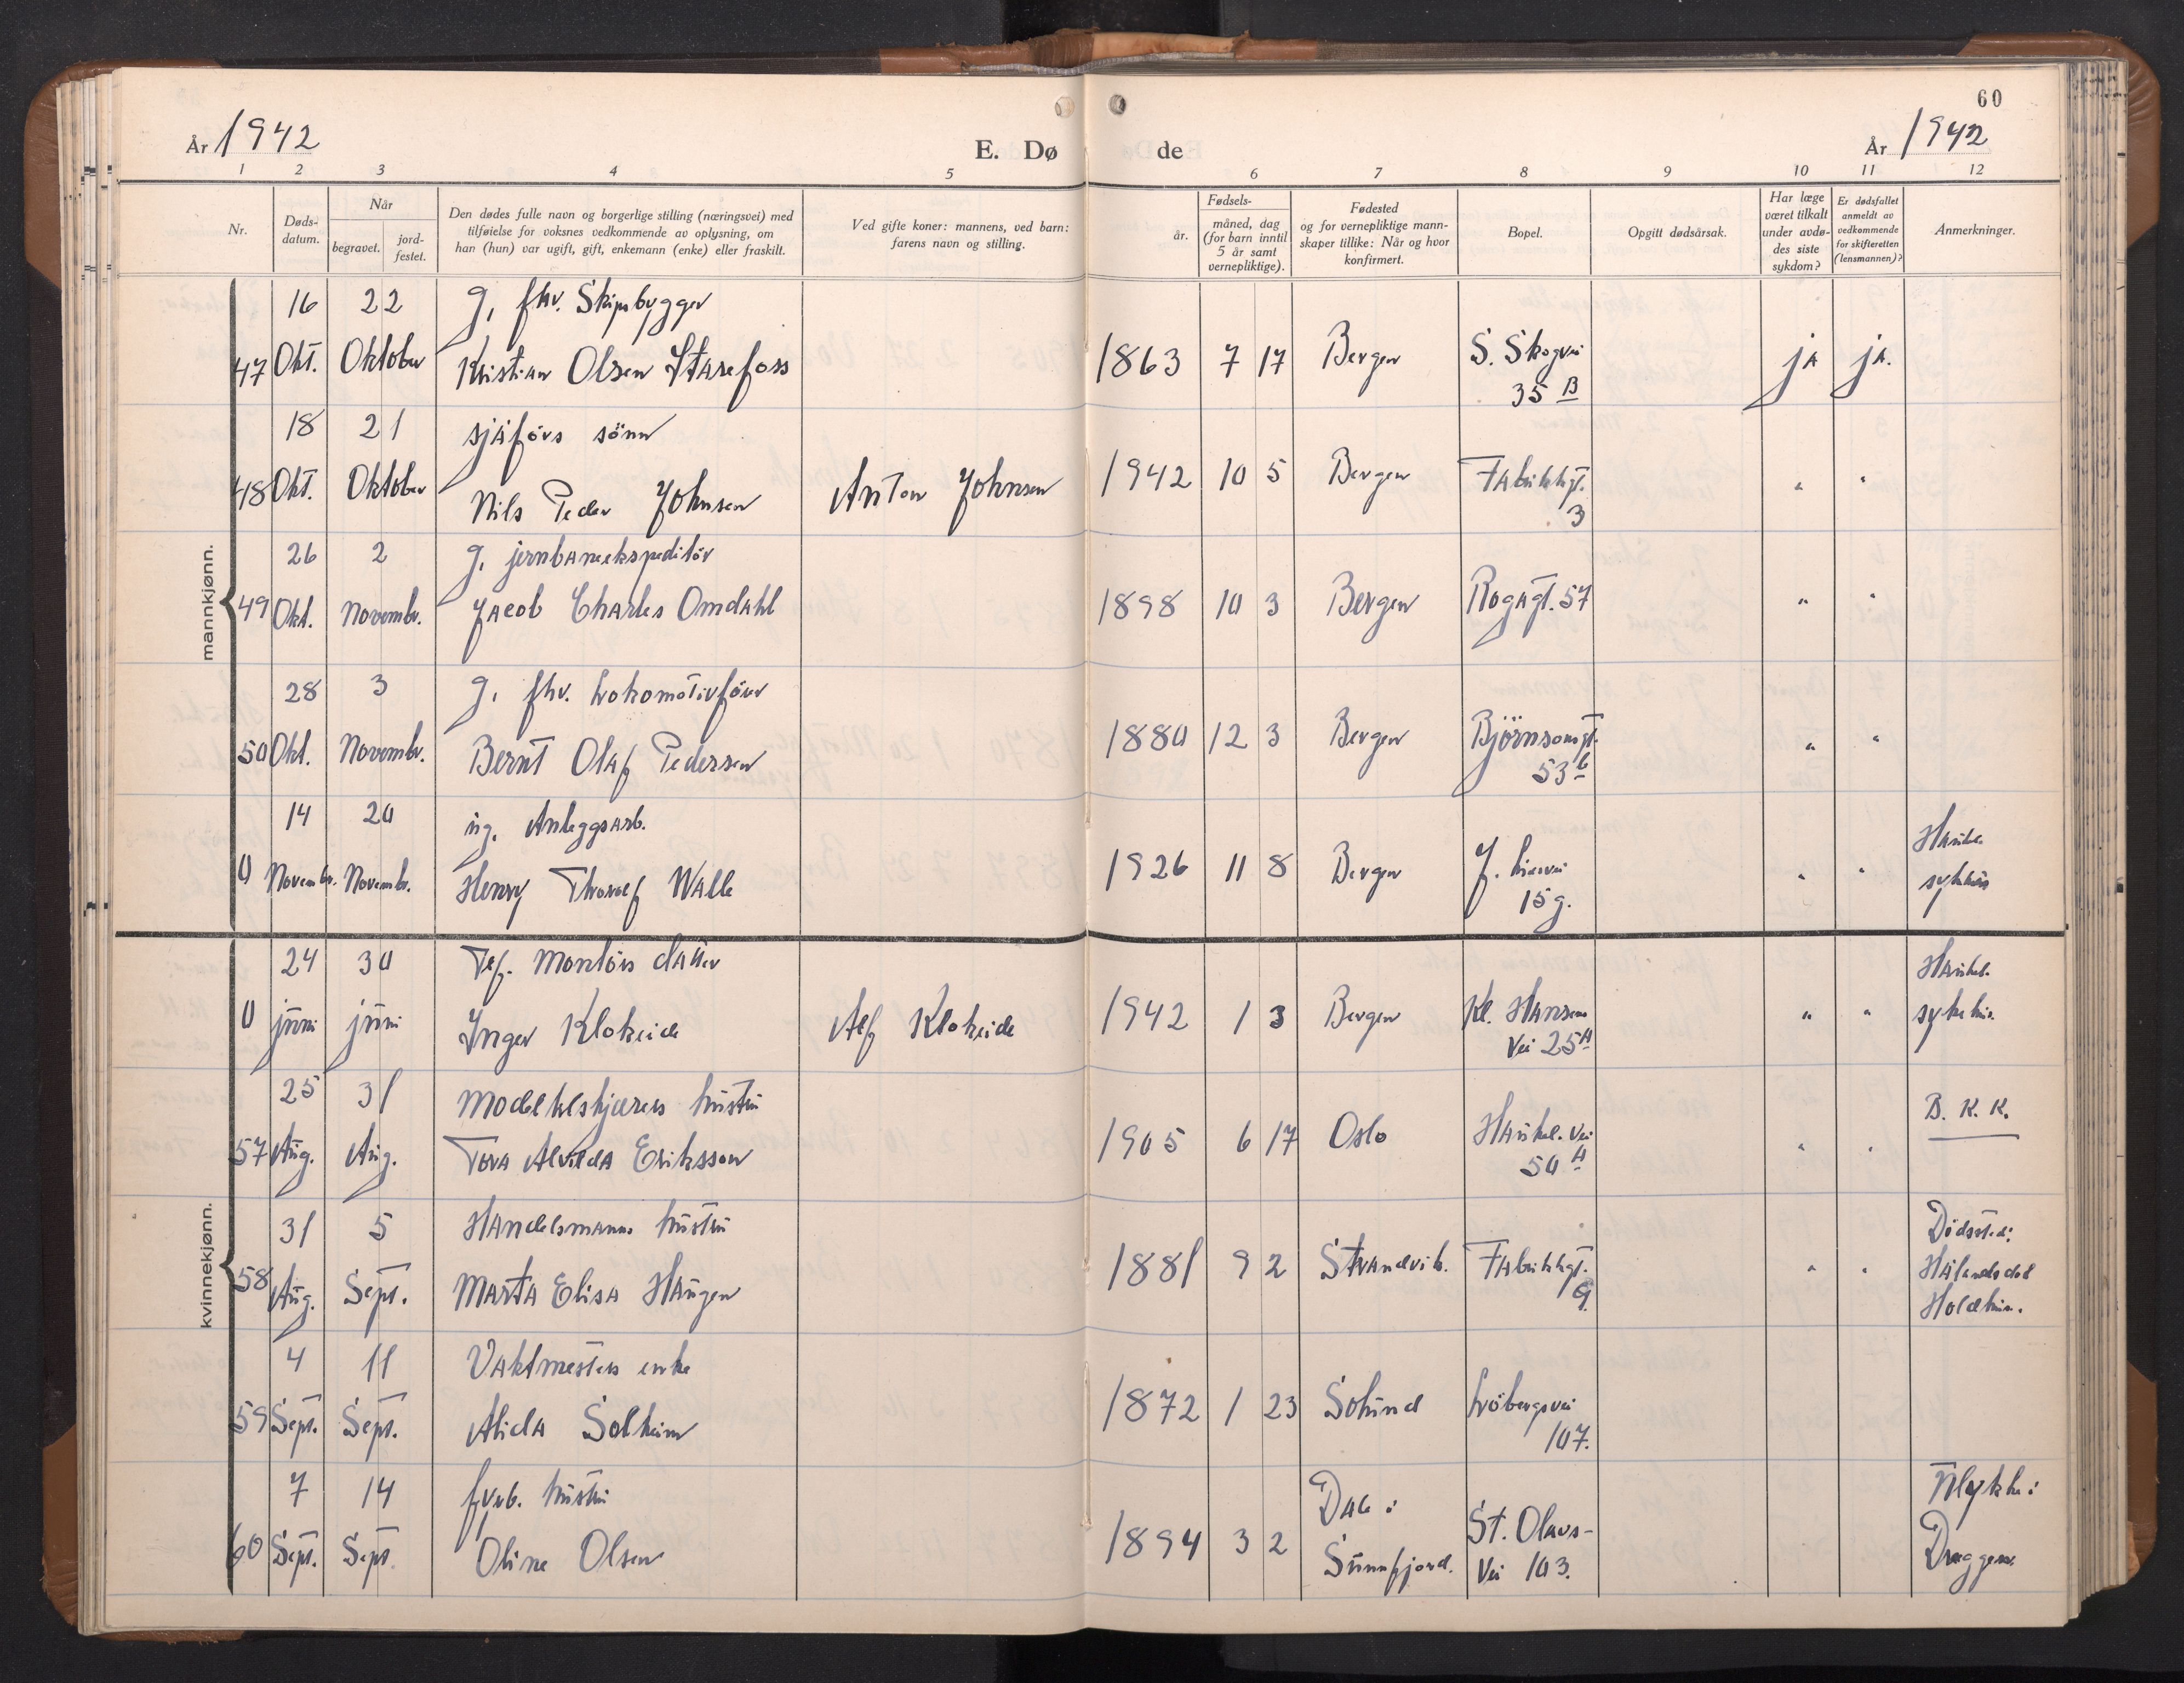 60
År 1942
E. Dø de
År 1942
1 2 3 4 5 6 7 8 9 10 11 12
Nr.
Døds-
datum.
Når
begravet.
jord-
festet.
Den dødes fulle navn og borgerlige stilling (næringsvei) med
tilføielse for voksnes vedkommende av oplysning, om
han (hun) var ugift, gift, enkemann (enke) eller fraskilt.
Ved gifte koner: mannens, ved barn:
farens navn og stilling.
Fødsels-
år.
måned, dag
(for barn inntil
5 år samt
vernepliktige).
Fødested
og for vernepliktige mann-
skaper tillike: Når og hvor
konfirmert.
Bopel.
Opgitt dødsårsak.
Har læge
været tilkalt
under avdø-
des siste
sykdom?
Er dødsfallet
anmeldt av
vedkommende
for skifteretten
(lensmannen)?
Anmerkninger.
mannkjønn.
16 22 g. fhv. Skipsbygger
47 Okt. Oktober Kristian Olsen Starefoss 1863 7 17 Bergen S. Skogvei ja ja.
35 B
18 21 sjåførs sönn
48 Okt. Oktober Nils Peder Johnsen Anton Johnsen 1942 10 5 Bergen Fabrikkgt. " "
3
26 2 g. jernbaneekspeditör
49 Okt. Novembr. Jacob Charles Omdahl 1898 10 3 Bergen Rogagt. 57 " "
28 3 g. fhv. Lokomotivförer
50 Okt. Novembr. Bernt Olaf Pedersen 1880 12 3 Bergen Björnsonsgt. " "
53 b
14 20 ug. Anleggsarb.
0 Novembr. Novembr. Henry Thoralf Walle 1926 11 8 Bergen J. Liesvei " " Haukel.
15 g. sykehus
kvinnekjønn.
24 30 Tef. Montörs datter
0 juni juni Inger Klokeide Alf Klokeide 1942 1 3 Bergen Kl. Hansens " " Haukel.
Vei 25 A sykehus.
25 31 Modellskjærers hustru
57 Aug. Aug. Tora Alvilda Eriksson 1905 6 17 Oslo Haukel. Vei " " B. K. K.
50 A
31 5 Handelsmanns hustru
58 Aug. Sept. Marta Elisa Haugen 1881 9 2 Strandvik. Fabrikkgt. " " Dödssted:
9. Hålandsdal
Holdhus.
4 11 Vaktmesters enke
59 Sept. Sept. Alida Solheim 1872 1 23 Solund Lröbergsvei
107.
7 14 fyrb. hustru
60 Sept. Sept. Oline Olsen 1894 3 2 Dale i St. Olavs- Ulykke i
Sunnfjord. Vei 103. Dreggen.